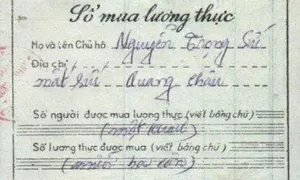 Sổ mua lương thực
Họ và tên Chủ hộ Nguyễn Trọng Sử
Địa chỉ
mất sức Quang Châu
Số người được mua lương thực (viết bằng chữ)
(một khẩu)
Số lương thực được mua (viết bằng chữ)
(mười ba cân)